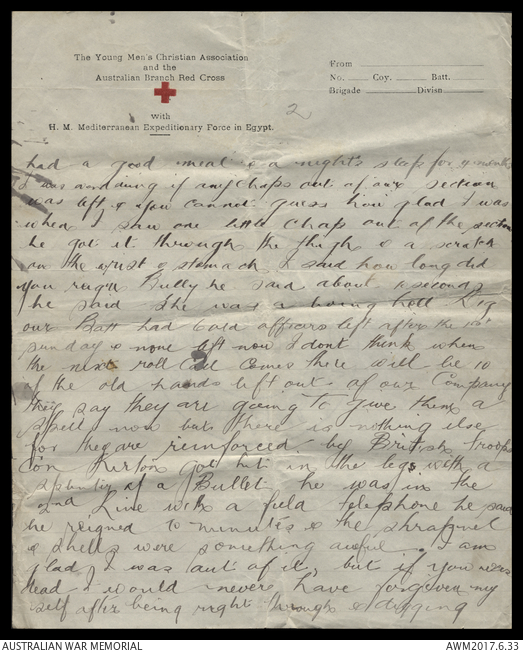 The Young Men's Christian Association
and the
Australian Branch Red Cross
with
H. M. Mediterranean Expeditionary Force in Egypt.
From
No. Coy. Batt.
Brigade Divisn.
2
had a good meal & a night's sleep for 4 months
I was wondering if any chaps out of our section
was left & you cannot guess how glad I was
when I saw one little chap out of the section
he got it through the thigh & a scratch
on the wrist & stomach I said how long did
you Bully he said about seconds
he said She was a hell
our Batt had 6 old officers left after the 1st
sunday & none left now I dont think when
the next roll call comes there will be 10
of the old hands left out of our Company
they say they are going to give them a
spell now but there is nothing else
for they are reinforced by British troops
Con got hit in the legs with a
of a Bullet he was in the
2nd Line with a field telephone he said
he reigned 10 minutes & the shrapnel
& shells were something awful. I am
glad I was out of it, but if you were
dead I would never have forgiven my
self after being right through & digging
AUSTRALIAN WAR MEMORIAL
AWM2017.6.33